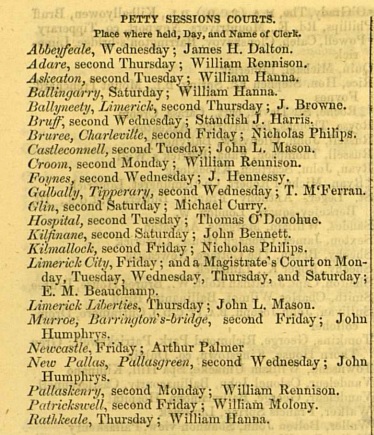 PETTY SESSIONS COURTS.
Place where held, Day, and Name of Clerk.
Abbeyfeale, Wednesday; James H. Dalton.
Adare, second Thursday; William Rennison.
Askeaton, second Tuesday; William Hanna.
Ballingarry, Saturday; William Hanna.
Ballyneety, Limerick, second Thursday; J. Browne.
Bruff, second Wednesday; Standish J. Harris.
Bruree, Charleville, second Friday; Nicholas Philips.
Castleconnell, second Tuesday; John L. Mason.
Croom, second Monday; William Rennison.
Foynes, second Wednesday; J. Hennessy.
Galbally, Tipperary, second Wednesday; T. M'Ferran.
Glin, second Saturday; Michael Curry.
Hospital, second Tuesday; Thomas O'Donohue.
Kilfinane, second Saturday; John Bennett.
Kilmallock, second Friday; Nicholas Philips.
Limerick City, Friday; and a Magistrate's Court on Mon-
day, Tuesday, Wednesday, Thursday, and Saturday;
E. M. Beauchamp.
Limerick Liberties, Thursday; John L. Mason.
Murroe, Barrington's-bridge, second Friday; John
Humphrys.
Newcastle, Friday; Arthur Palmer
New Pallas, Pallasgreen, second Wednesday; John
Humphrys.
Pallaskenry, second Monday; William Rennison.
Patrickswell, second Friday; William Molony.
Rathkeale, Thursday; William Hanna.